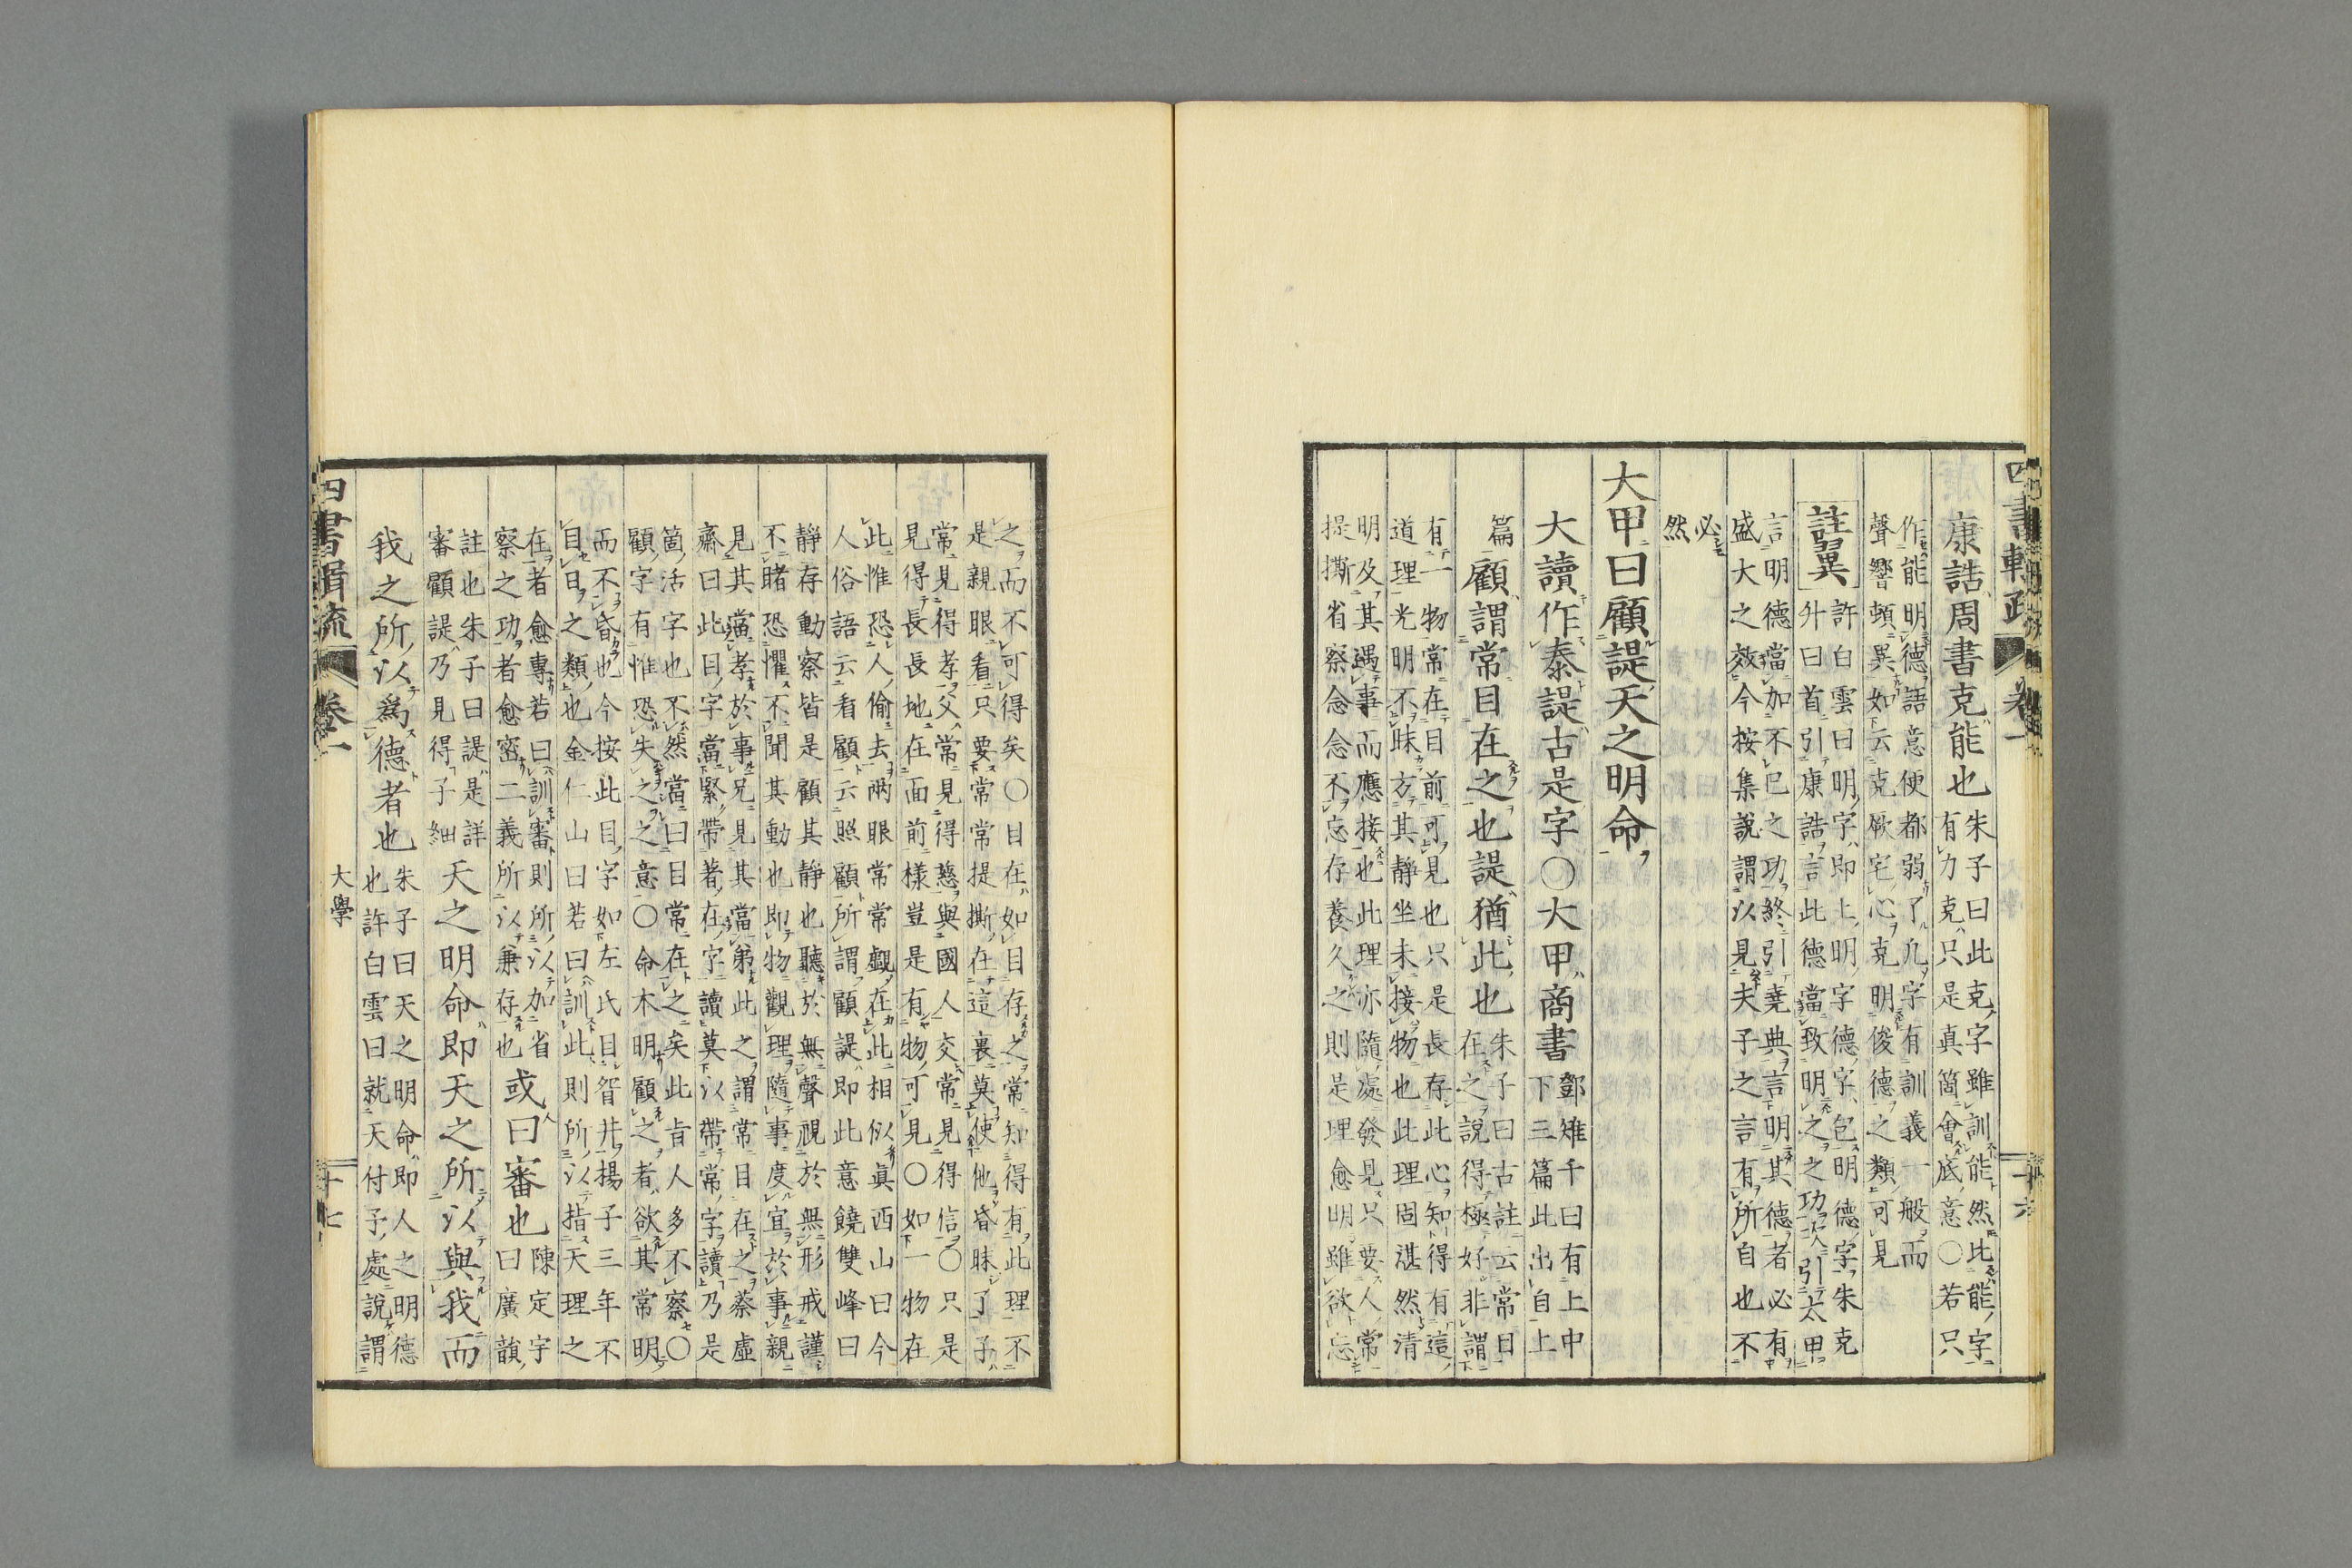 康誥周書克能也
朱子曰此克字雖訓能然比能字
有力克只是真箇會底意〇若只
作能明德語意便都弱了凡字有訓義一般而
聲響頓異如云克厥宅心克明俊德之類可見
註翼
許白雲曰明字即上明字德字包明德字朱克
升曰首引康誥言此德當致明之之功次引太甲
言明德當加不已之功終引堯典言明其德者必有
盛大之效今按集說謂以見夫子之言有所自也不
必
然
大甲曰顧諟天之明命
大讀作泰諟古是字〇大甲商書
鄧雉千曰有上中
下三篇此出自上
篇
顧謂常目在之也諟猶此也
朱子曰古註云常目
在之說得極好非謂
有一物常在目前可見也只是長存此心知得有這
道理光明不昧方其靜坐未接物也此理固湛然清
明及其遇事而應接也此理亦隨處發見只要人常
提撕省察念念不忘存養久之則是理愈明雖欲忘
之而不可得矣〇目在如目存之常知得有此理不
是親眼看只要常常提撕在這裏莫使他昏昧了子
常見得孝父常見得慈與國人交常見得信〇只是
見得長長地在面前樣豈是有物可見〇如一物在
此惟恐人偷去兩眼常常覷在此相似真西山曰今
人俗語云看顧云照顧所謂顧諟即此意饒雙峰曰
靜存動察皆是顧其靜也聽於無聲視於無形戒謹
不睹恐懼不聞其動也即物觀理隨事度宜於事親
見其當孝於事兄見其當弟此之謂常目在之蔡虛
齋曰此目字當緊帶著在字讀莫以帶常字讀乃是
箇活字也不然當曰目常在之矣此旨人多不察〇
顧字有惟恐失之之意〇命木明顧之者欲其常明
而不昏也今按此目字如左氏目眢井揚子三年不
目日之類也金仁山曰若曰訓此則所以指天理之
在者愈專若曰訓審則所以加省
察之功者愈密二義所以兼存也
或曰審也
陳定宇
曰廣韻
註也朱子曰諟是詳
審顧諟乃見得子細
天之明命即天之所以與我而
我之所以為德者也
朱子曰天之明命即人之明德
也許白雲曰就天付予處說謂
大學
卷一
十七